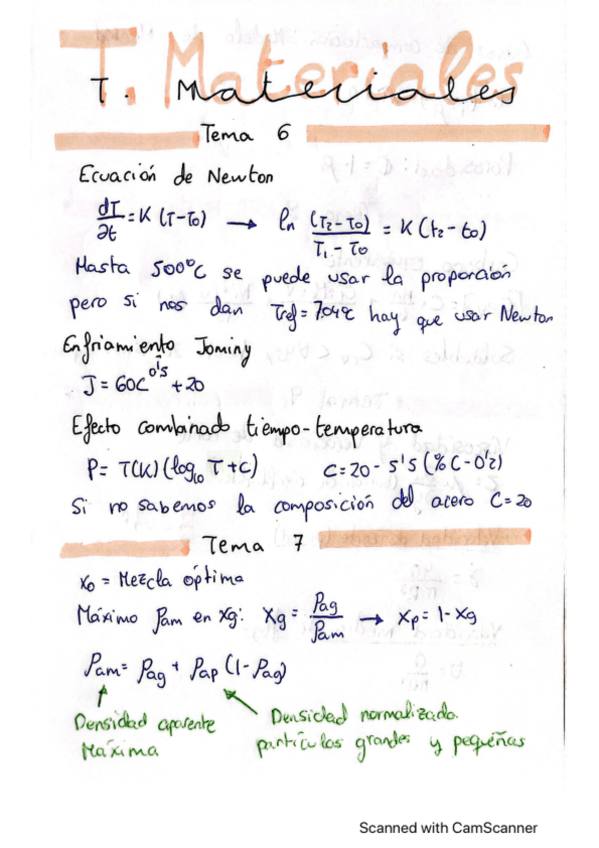 T. Materiales
T. Materiales
Tema 6
Ecuación de Newton
dT/∂t = K (T-T0) → ln (T2-T0)/(T1-T0) = K (t2-t0)
Hasta 500ºC se puede usar la proporción
pero si nos dan Tref=704ºC hay que usar Newton
Enfriamiento Jominy
J = 60C^0's + 20
Efecto combinado tiempo-temperatura
P = T(K) (log10 T + C) C = 20 - 5's (%C - 0'2)
Si no sabemos la composición del acero C=20
Tema 7
x0 = Mezcla óptima
Máximo ρam en xg: xg = ρag/ρam → xp = 1 - xg
ρam = ρag + ρap (1 - ρag)
Densidad aparente Máxima
Densidad normalizada.
partículas grandes y pequeñas
Scanned with CamScanner